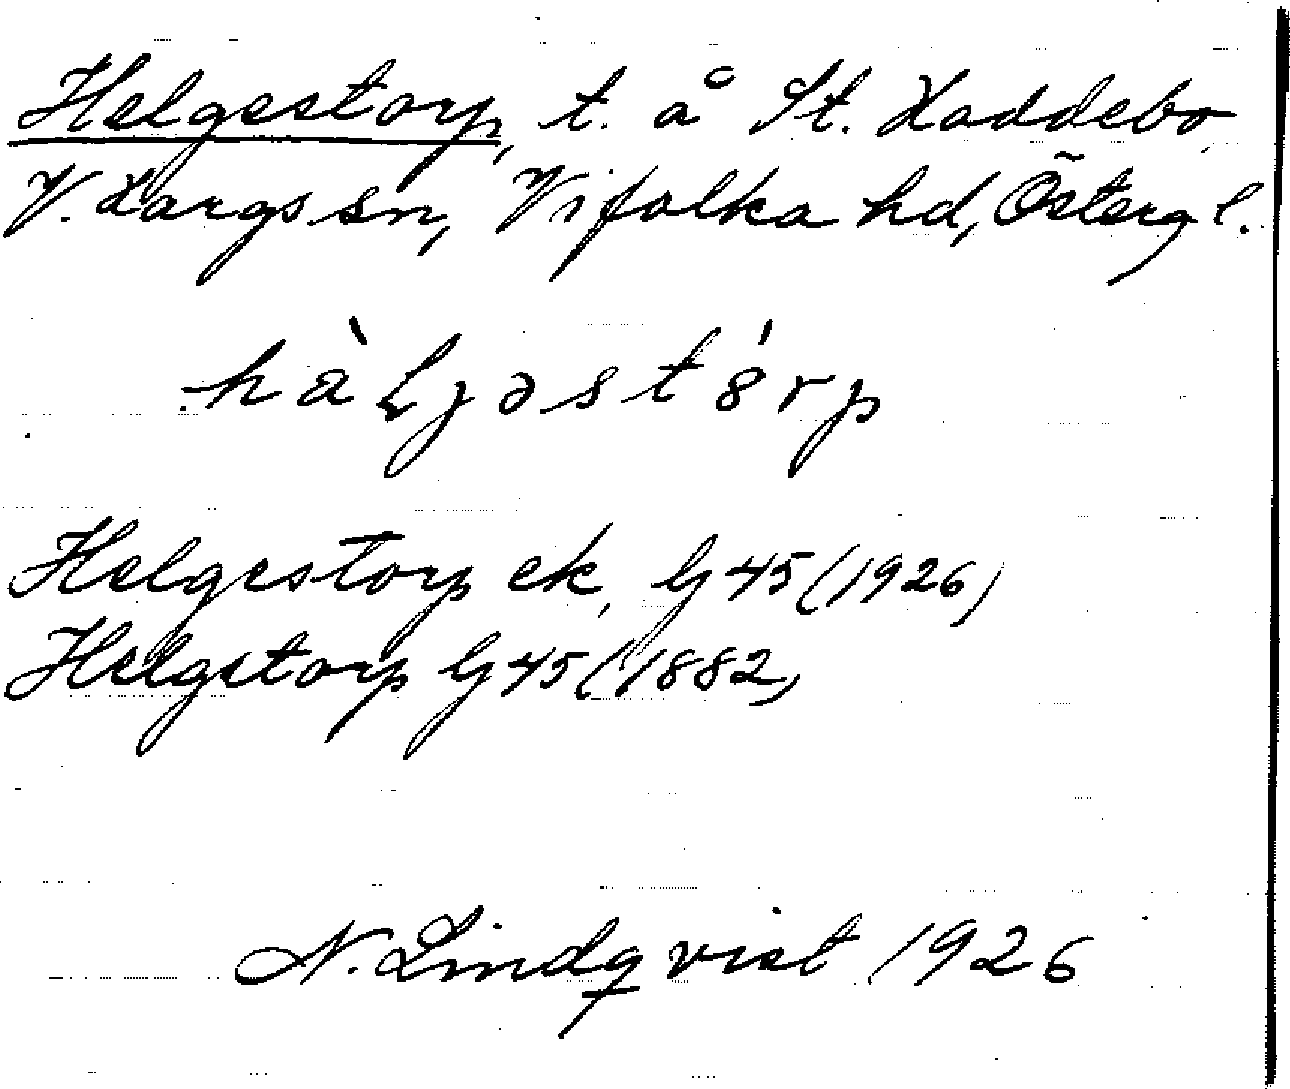 Helgestorp, t. å St. Haddebo,
V. Hargs sn, Vifolka hd, Östergl.
hàljəstórp
Helgestorp ek, G 45 (1926)
Helgetorp G 45 (1882)
N. Lindqvist 1926